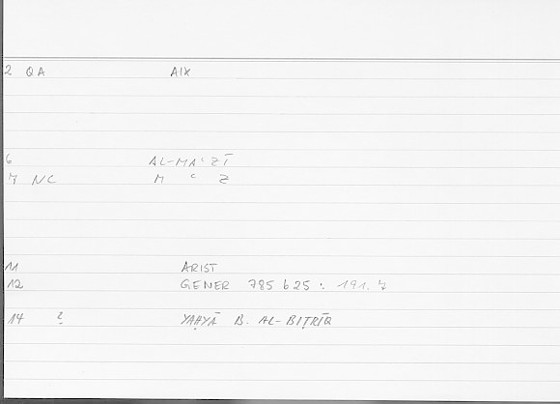 2 QA AIX
6 AL-MAʿZĪ
7 NC M ʿ Z
11 ARIST
12 GENER 785 b 25 : 191.7
14 ? YAḤYĀ B. AL-BIṬRĪQ